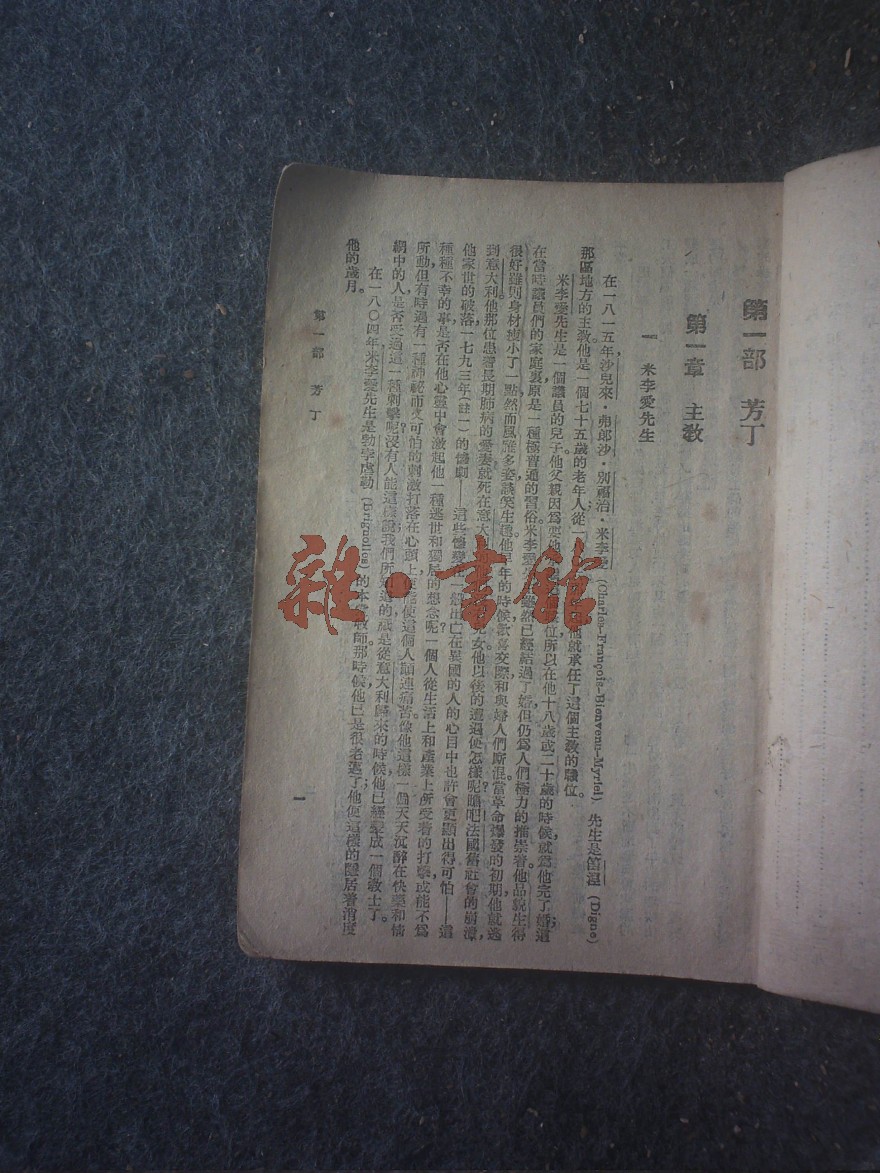 第一部 芳丁
第一章 主教
一 米李愛先生
在一八一五年,沙兒來·弗郎沙·別福治·米李愛(Charles-François-Bienvenu-Myriel)先生是笛湼(Digne)
那區地方的主教。他是一個七十五歲的老年人;從一 他就承任了這個主教的職位。
米李愛先生是一個議員的兒子。他父親因爲要他 位,所以在他十八歲或二十歲的時候,就爲他完了婚;這
在當時議員們的家庭裏原是一種極普通的習俗。米李愛 雖然已經結過了婚,但仍爲人們極力的推崇着。他品貌生得
很好,雖則身材瘦小了一點,然而風雅多姿,談笑生趣。他早年的時候,歡喜交際和與婦人們厮混。當革命爆發的初期,他就逃
到意大利。他那位患着長期肺病的愛妻就死在意大 兒女。他以後的遭遇便怎樣呢?瞧吧,法國舊社會的崩潰,
他家世的破落,一七九三年(註一)的慘劇——這些慘變在一般出亡在異國的人的心目中也許會更顯出得可怕——這
種種不幸的事是否在他心靈中會激起他一種遯世和獨居的想念呢?一個人從生活上和產業上所受着的打擊或能不爲
所動,但有時遇有一種神祕而又可怕的刺激打落在心頭上,便能使這個人顚連痛苦。像他這樣一個天天沉醉在快樂和情
網中的人是否受過這一種刺擊呢?沒有人能這樣說;我們所知道的就是從意大利歸來的時候,他已經變成一個教士了。
在一八〇四年,米李愛先生是勃李虛勒(Brignolles)的本堂教師。那時候,他已是很老邁了;他便這樣的隱居着消度
他的歲月。
第一部 芳丁
一
雜·書館